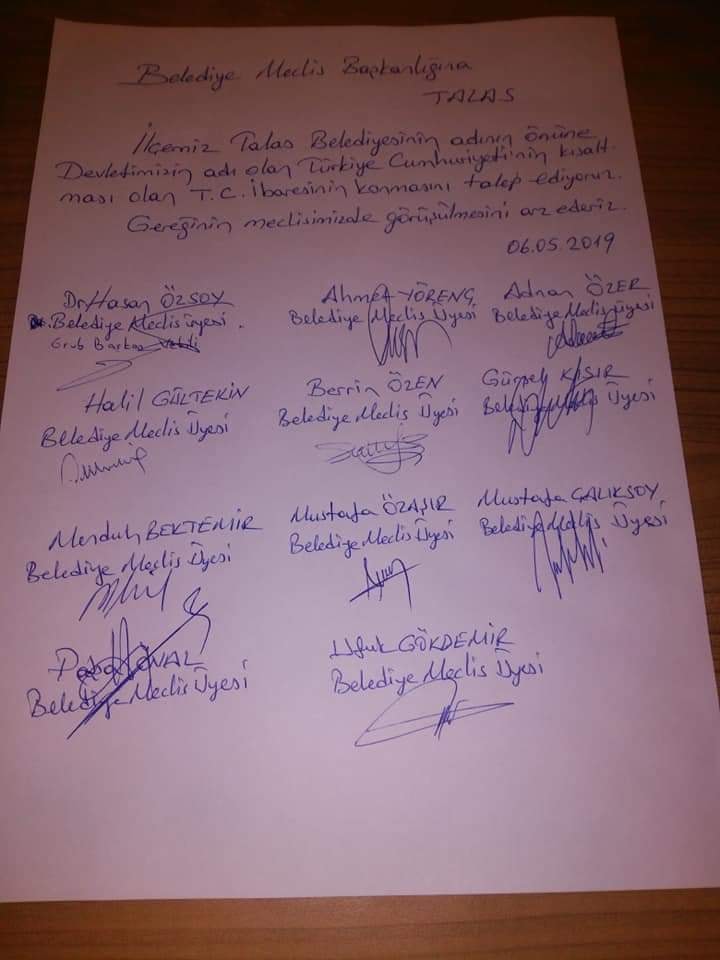 Belediye Meclis Başkanlığına
TALAS
İlçemiz Talas Belediyesinin adının önüne
Devletimizin adı olan Türkiye Cumhuriyeti'nin kısalt-
ması olan T.C. İbaresinin konmasını talep ediyoruz.
Gereğinin meclisimizde görüşülmesini arz ederiz.
06.05.2019
Dr. Hasan ÖZSOY
Belediye Meclis üyesi.
Grub Başkan Vekili
Ahmet YÖRENÇ
Belediye Meclis Üyesi
Adnan ÖZER
Belediye Meclis üyesi
Halil GÜLTEKİN
Belediye Meclis Üyesi
Berrin ÖZEN
Belediye Meclis Üyesi
KISIR
Belediye Meclis Üyesi
Memduh BEKTEMİR
Belediye Meclis Üyesi
Mustafa ÖZAŞIR
Belediye Meclis Üyesi
Mustafa ÇALIKSOY
Belediye Meclis Üyesi
ÜNAL
Belediye Meclis Üyesi
Ufuk GÖKDEMİR
Belediye Meclis Üyesi